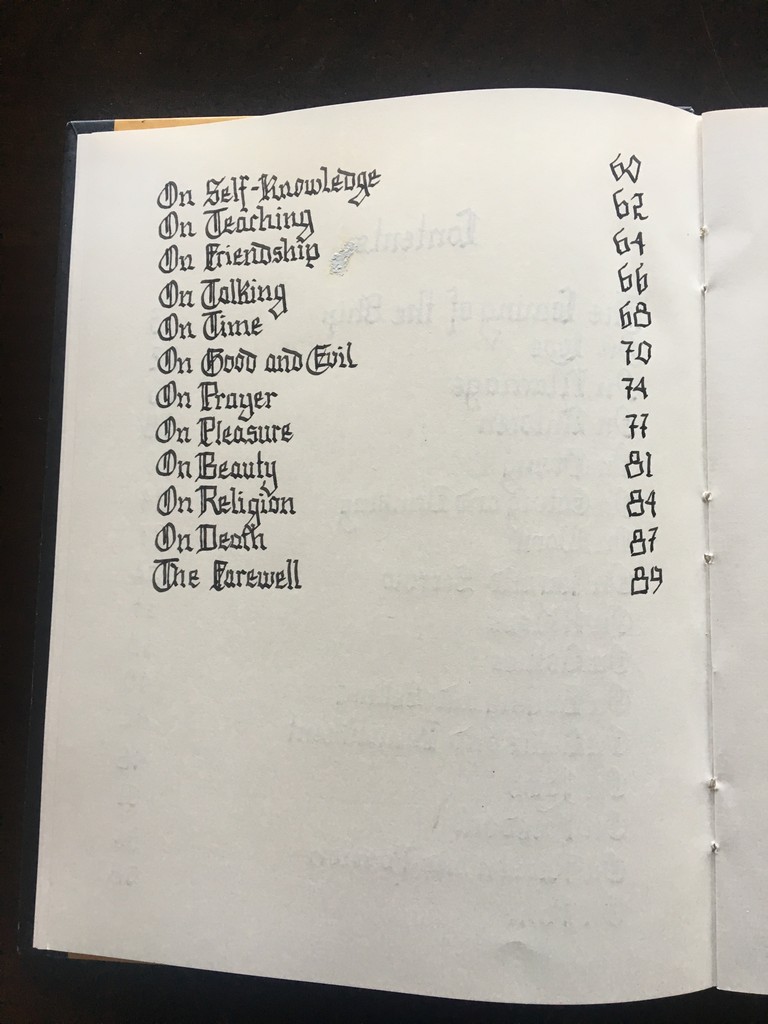 On Self-Knowledge 60
On Teaching 62
On Friendship 64
On Talking 66
On Time 68
On Good and Evil 70
On Prayer 74
On Pleasure 77
On Beauty 81
On Religion 84
On Death 87
The Farewell 89